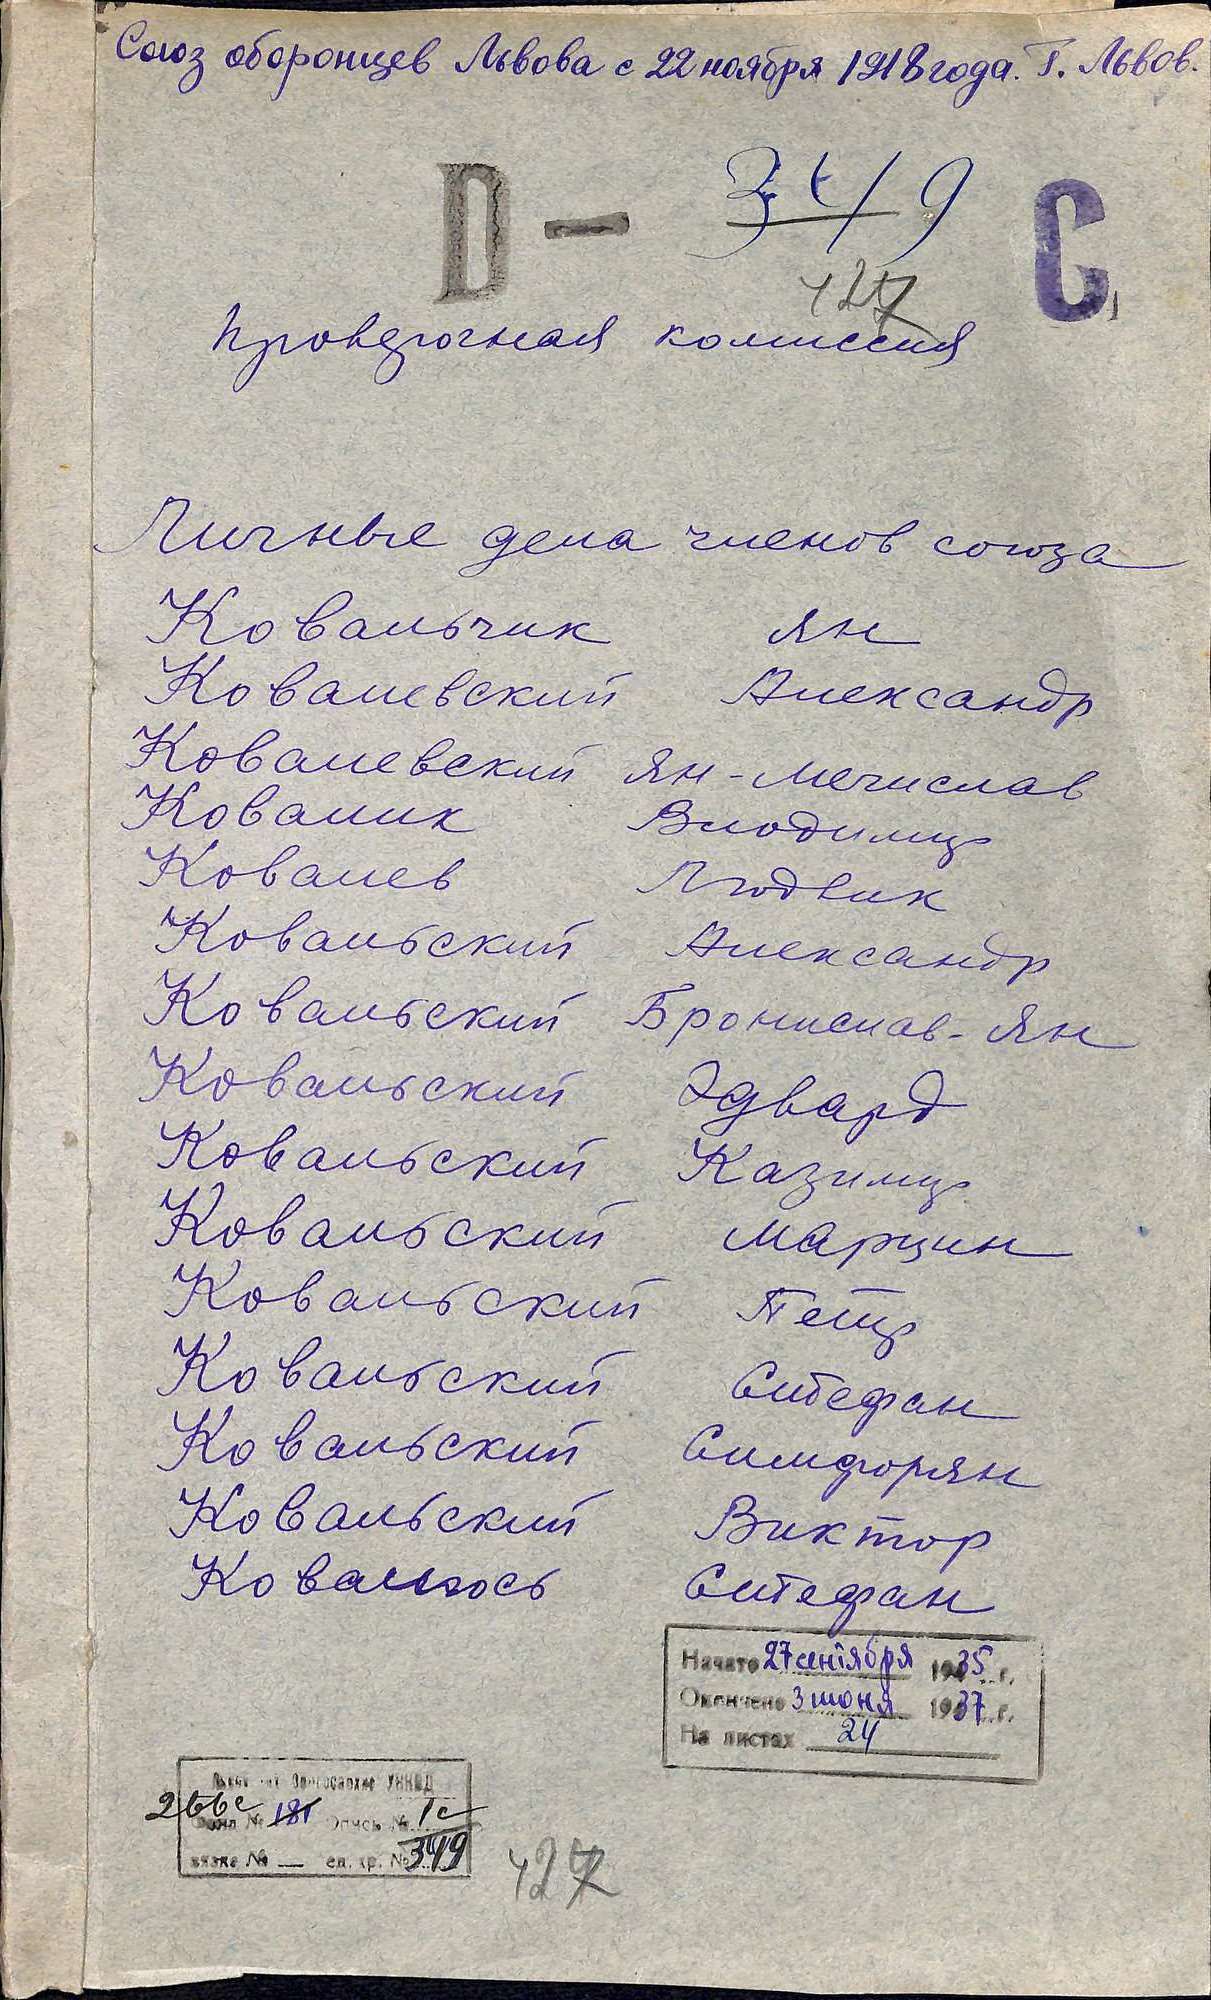 Союз оборонцев Львова с 22 ноября 1918 года. Г. Львов.
D — 349 C
427
Проверочная комиссия
Личные дела членов союза
Ковальчик Ян
Ковалевский Александр
Ковалевский Ян-Мечислав
Ковалик Влодимир
Ковалев Людвик
Ковальский Александр
Ковальский Бронислав-Ян
Ковальский Эдвард
Ковальский Казимир
Ковальский Марцин
Ковальский Петр
Ковальский Стефан
Ковальский Симфорян
Ковальский Виктор
Ковалюсь Стефан
Начато 27 сентября 1935 г.
Окончено 3 июня 1937 г.
На листах 24
УНКВД
266с Фонд № 181 Опись № 1с
вязка № — ед. хр. № 349
427